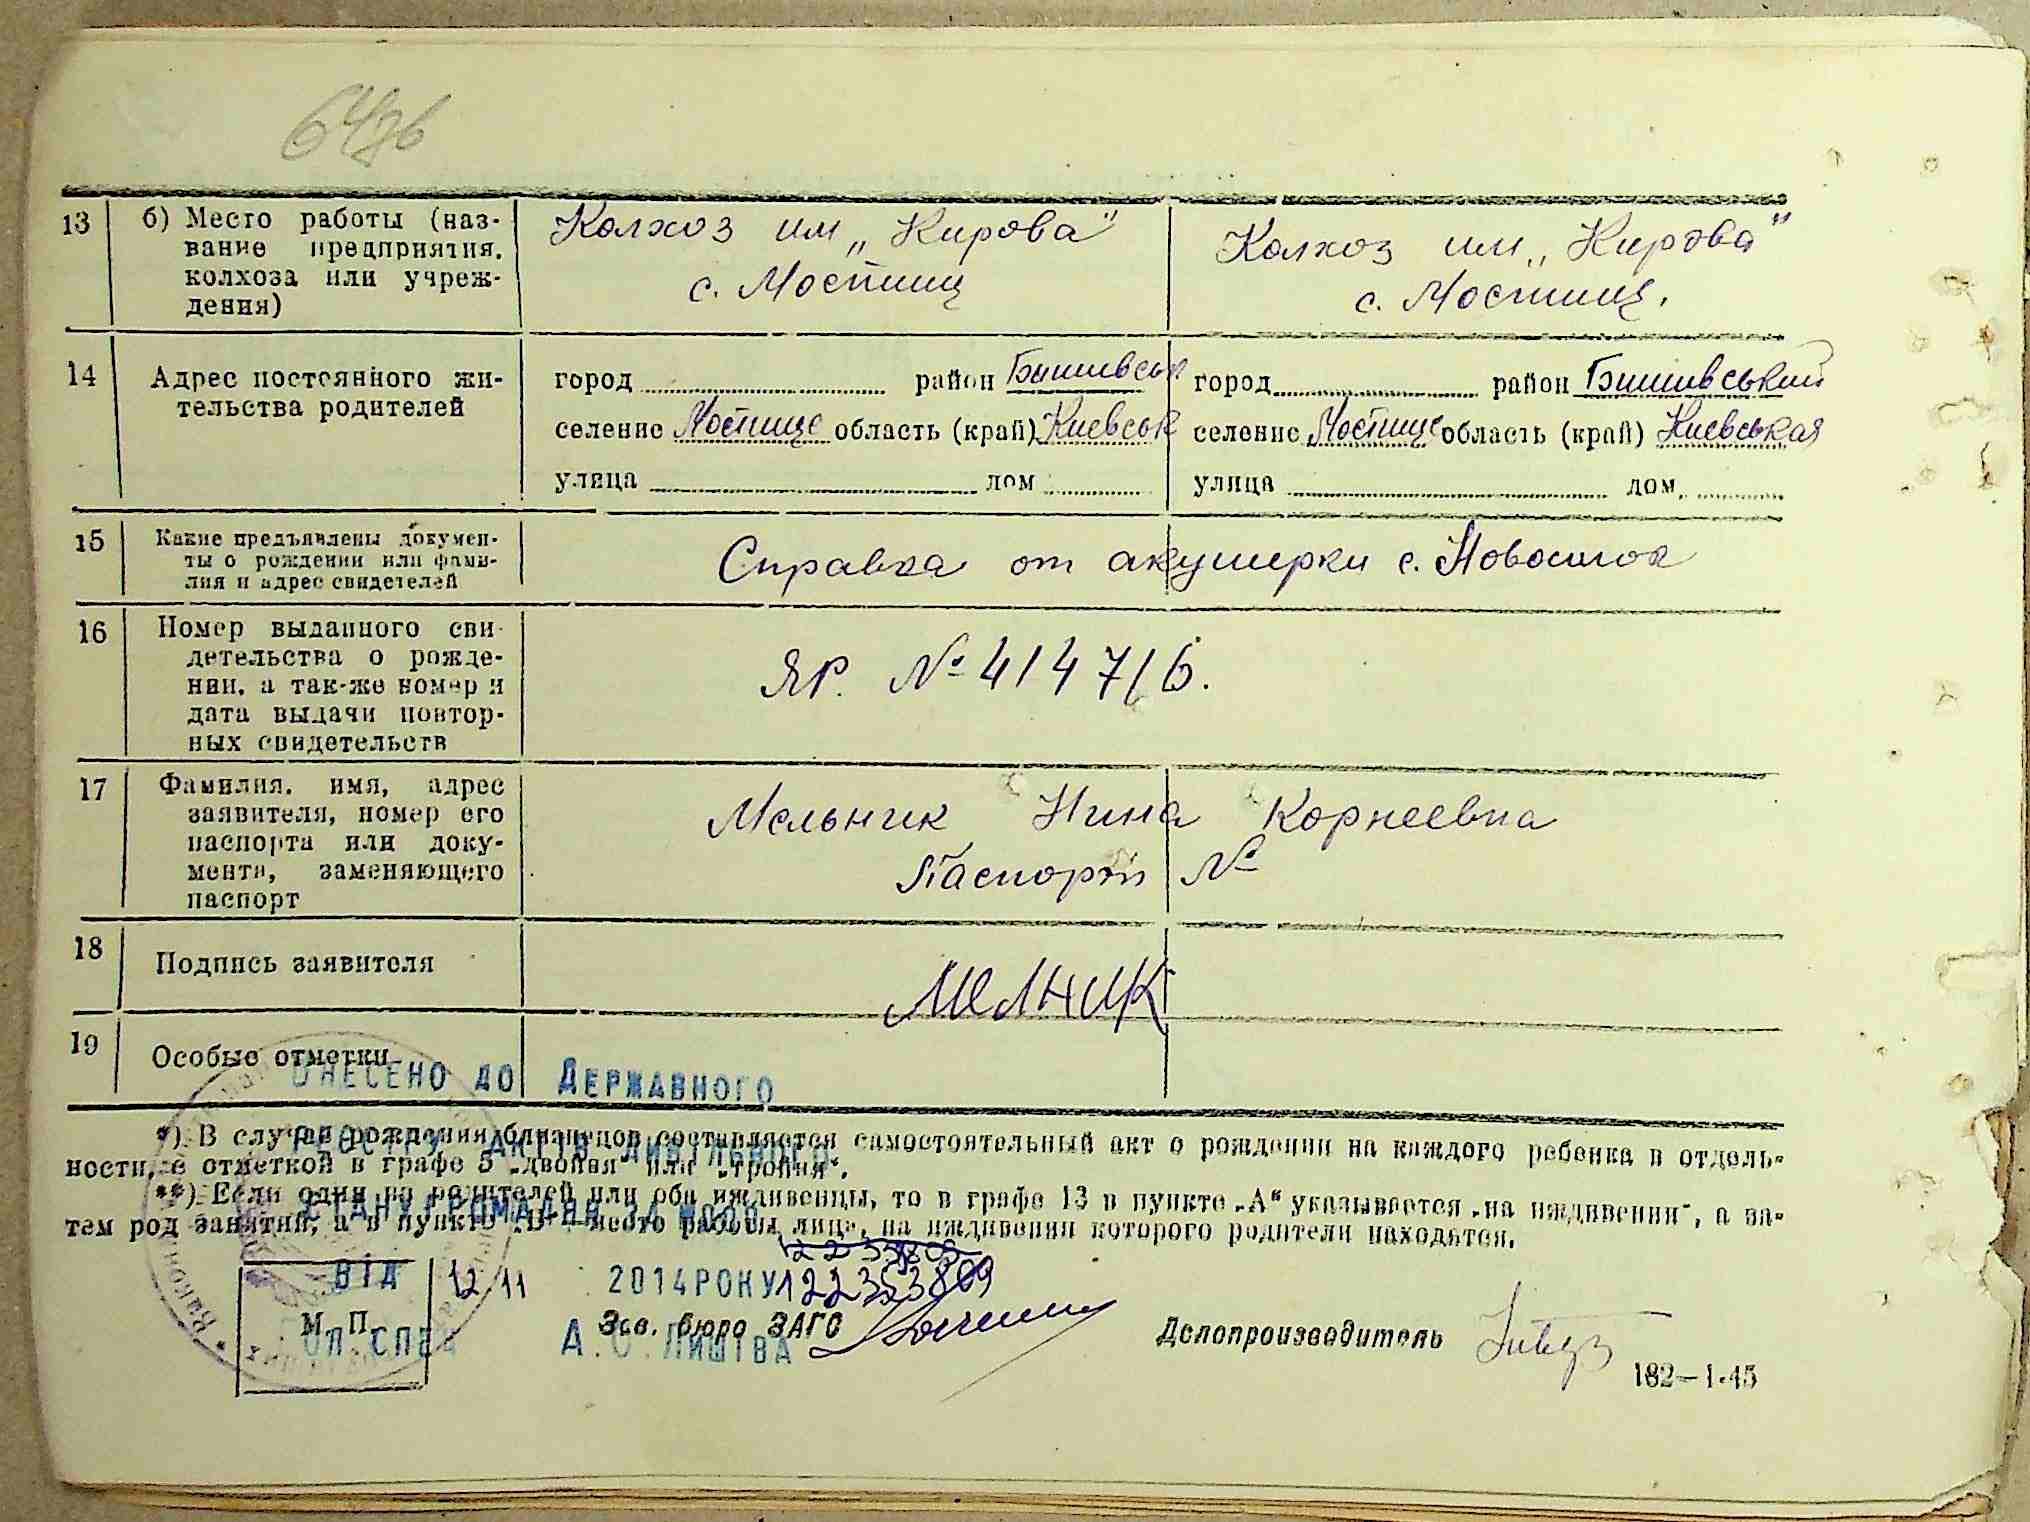 13 б) Место работы (наз-
вание предприятия,
колхоза или учреж-
дения)
Колхоз им „Кирова"
с. Мостищ
Колхоз им „Кирова"
с. Мостищ.
14 Адрес постоянного жи-
тельства родителей
город район Бишивськ
селение Мостище область (край) Киевськ
улица дом
город район Бишивський
селение Мостище область (край) Киевськая
улица дом
15 Какие предъявлены докумен-
ты о рождении или фами-
лия и адрес свидетелей
Справка от акушерки с.
16 Номер выданного сви-
детельства о рожде-
нии, а так-же номер и
дата выдачи повтор-
ных свидетельств
ЯР. № 414716.
17 Фамилия, имя, адрес
заявителя, номер его
паспорта или доку-
мента, заменяющего
паспорт
Мельник Нина Корнеевна
Паспорт №
18 Подпись заявителя
Мелник
19 Особые отметки
ВНЕСЕНО ДО ДЕРЖАВНОГО
РЕЄСТРУ АКТІВ ЦИВІЛЬНОГО
СТАНУ ГРОМАДЯН ЗА №
*) В случаи рождения близнецов составляется самостоятельный акт о рождении на каждого ребенка в отдель-
ности, с отметкой в графе 5 „двойня" или „тройня".
**) Если один из родителей или оба иждивенцы, то в графе 13 в пункте „А" указывается „на иждивении", а за-
тем род занятий, а в пункте „Б" - место работы лица, на иждивении которого родители находятся.
ВІД 12 11 2014 РОКУ 122353809
М. П. Зав. бюро ЗАГС
ПІ. СПЕЦ А. О. ЛИШТВА
Делопроизводитель
182—1-45